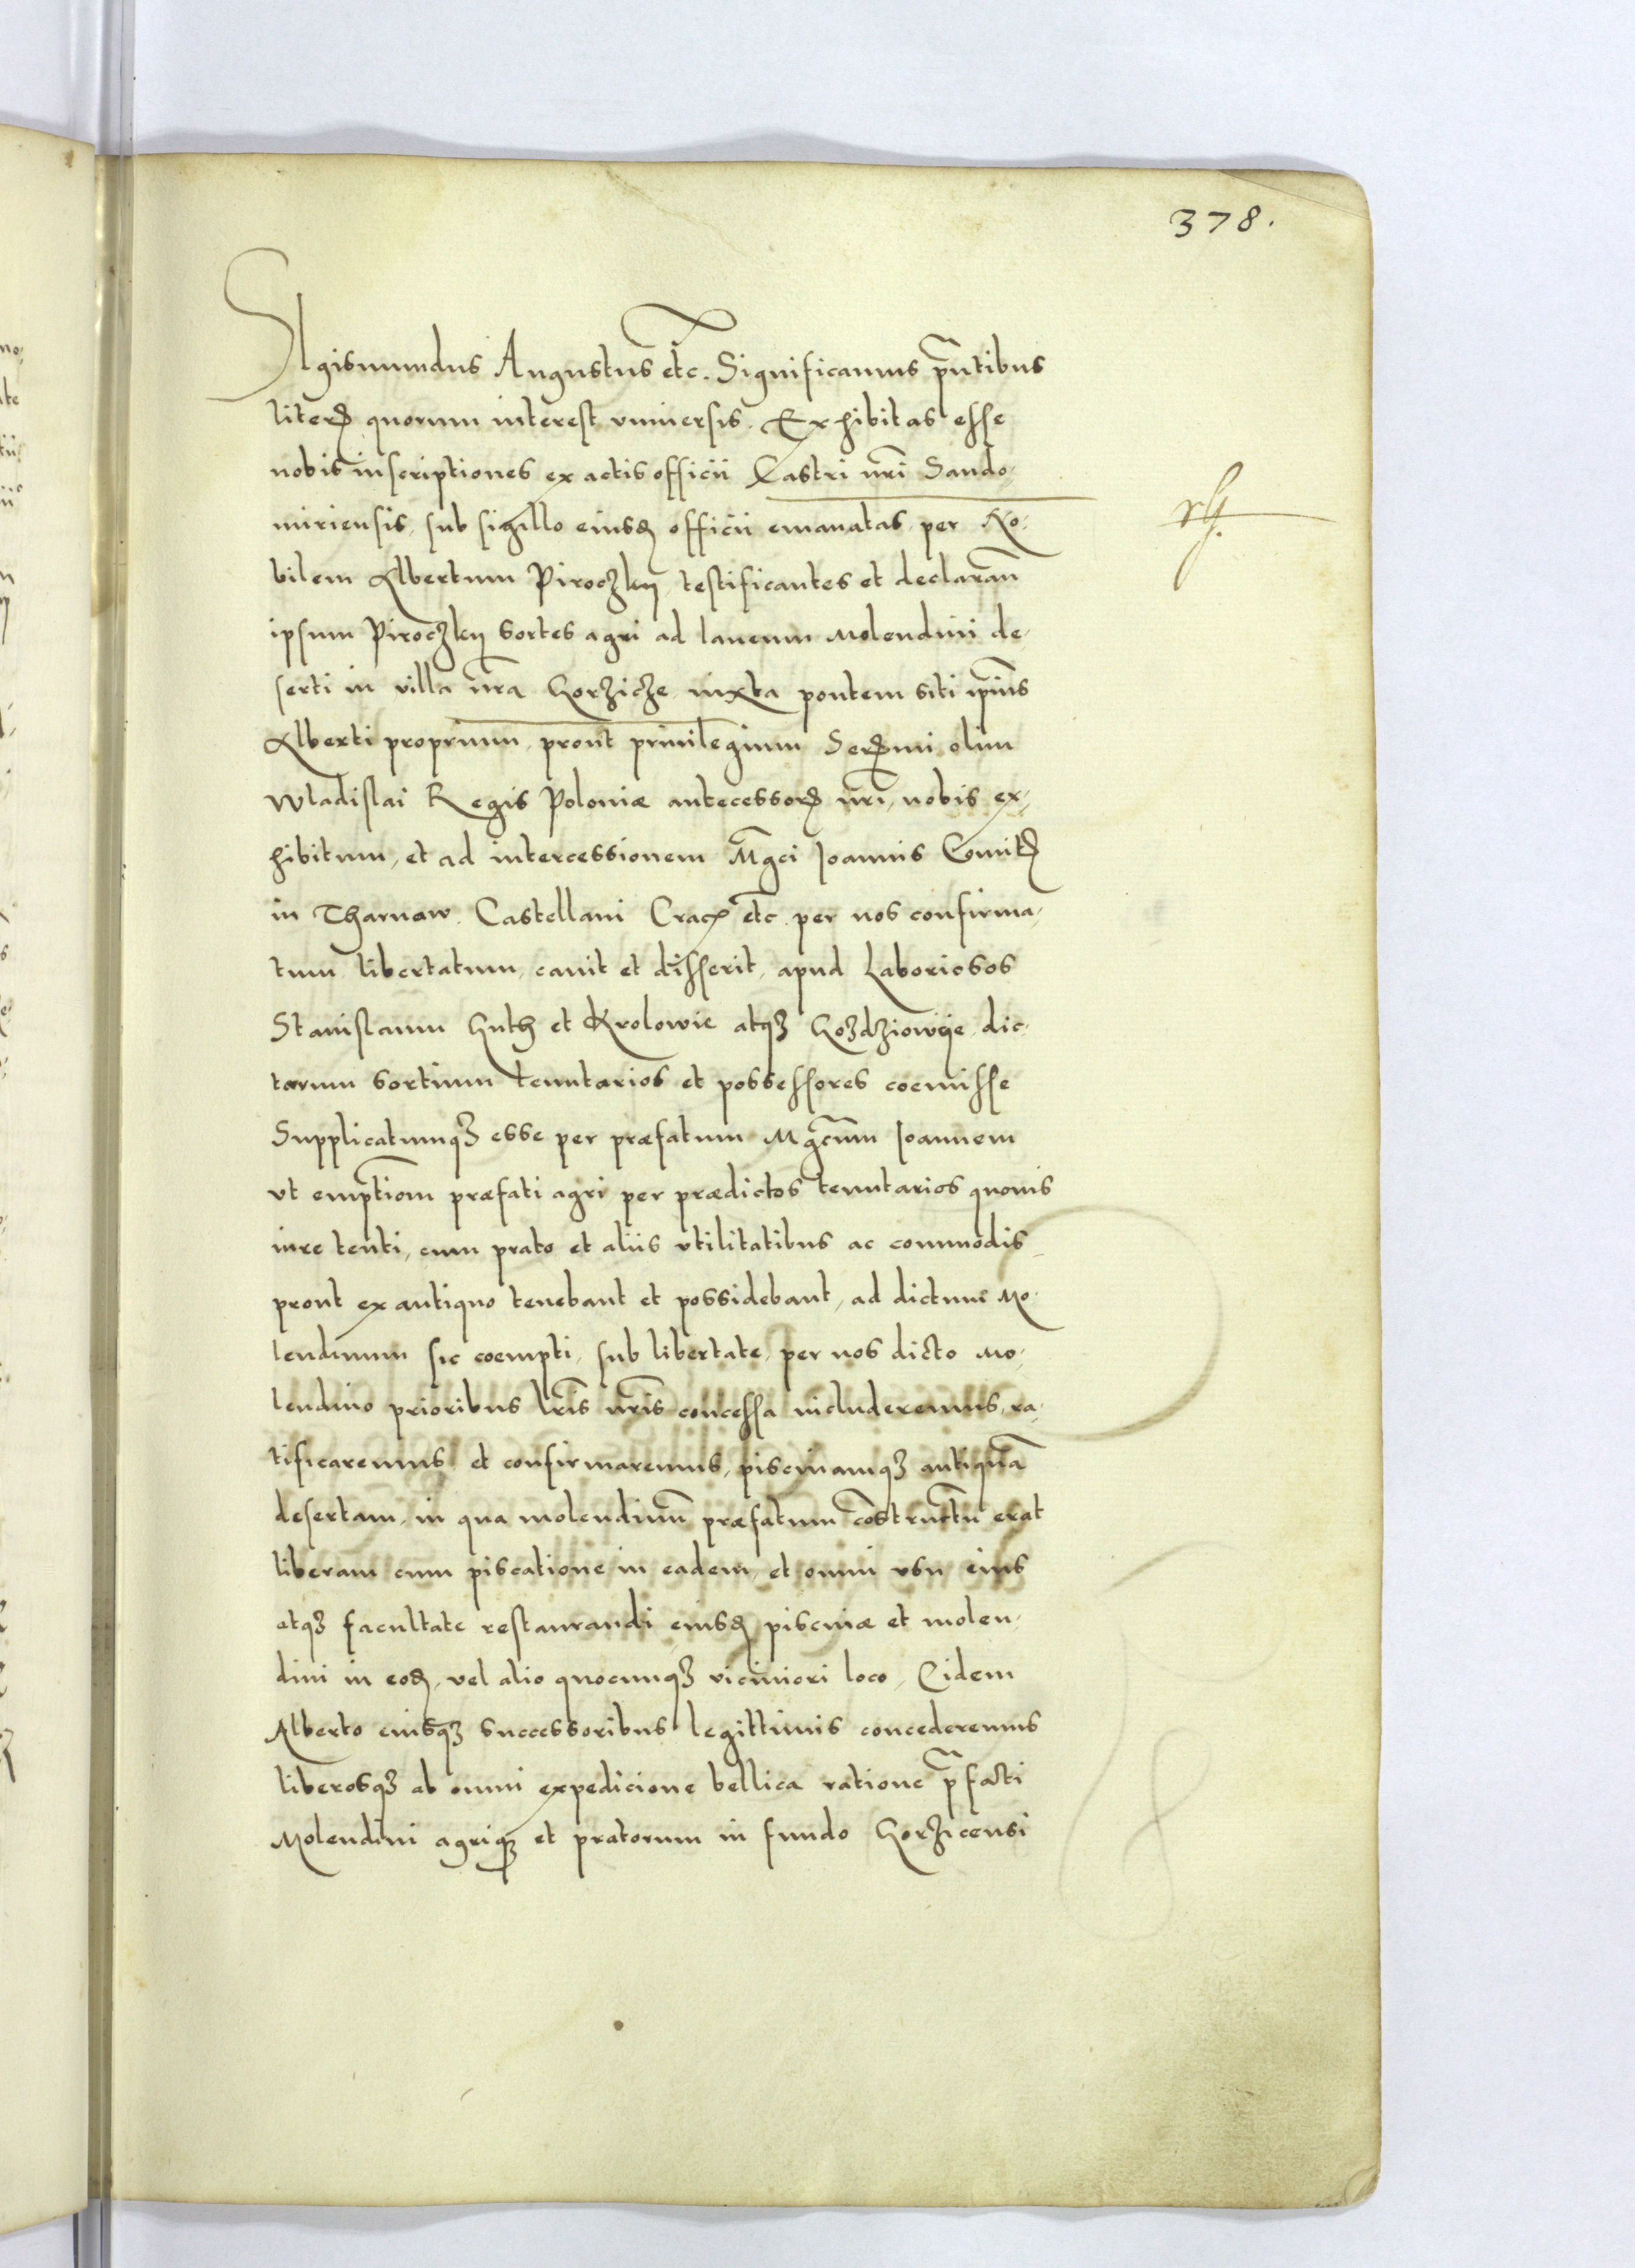 378.
SIgismundus Augustus etc. Significamus pñtibus
literꝭ quorum interest vniuersis. Exhibitas esse
nobis inscriptiones ex actis officii Castri nr̃i Sando-
miriensis, sub sigillo eiusdꝫ officii emanatas, per No-
bilem Albertum Piroczky, testificantes et declaran̄
ipsum Piroczky sortes agri ad laneum Molendini de-
serti in villa nr̃a Gorzicze iuxta pontem siti ip̃ius
Alberti proprium, prout priuilegium Serꝭmi olim
Wladislai Regis Poloniæ antecessorꝭ nr̃i, nobis ex-
hibitum, et ad intercessionem Mg̃ci Joannis Comitꝭ
in Tharnow Castellani Cracꝭ etc. per nos confirma-
tum libertatum, cauit et disserit, apud Laboriosos
Stanislaum Guth et Krolowie atqꝫ Gozdziowye dic-
tarum sortium tenutarios et possessores coemisse
Supplicatumqꝫ esse per præfatum Mgc̃um Joannem
vt emptiom̃ præfati agri per prædictos tenutarios quouis
iure tenti, cum prato et aliis vtilitatibus ac commodis
prout ex antiquo tenebant et possidebant, ad dictum Mo-
lendinum sic coempti, sub libertate, per nos dicto Mo-
lendino prioribus lr̃is nr̃is concessa includeremus, ra-
tificaremus et confirmaremus, piscinamqꝫ antiquã
desertam, in qua molendinũ præfatum cõstructũ erat
liberam cum piscatione in eadem, et omni vsu eius
atqꝫ facultate restaurandi eiusdꝫ piscinæ et molen-
dini in eodꝫ, vel alio quocunqꝫ viciniori loco, Eidem
Alberto eiusqꝫ successoribus legittimis concederemus
liberosqꝫ ab omni expedicione bellica ratione p̃facti
Molendini agriqꝫ et pratorum in fundo Gorzicensi